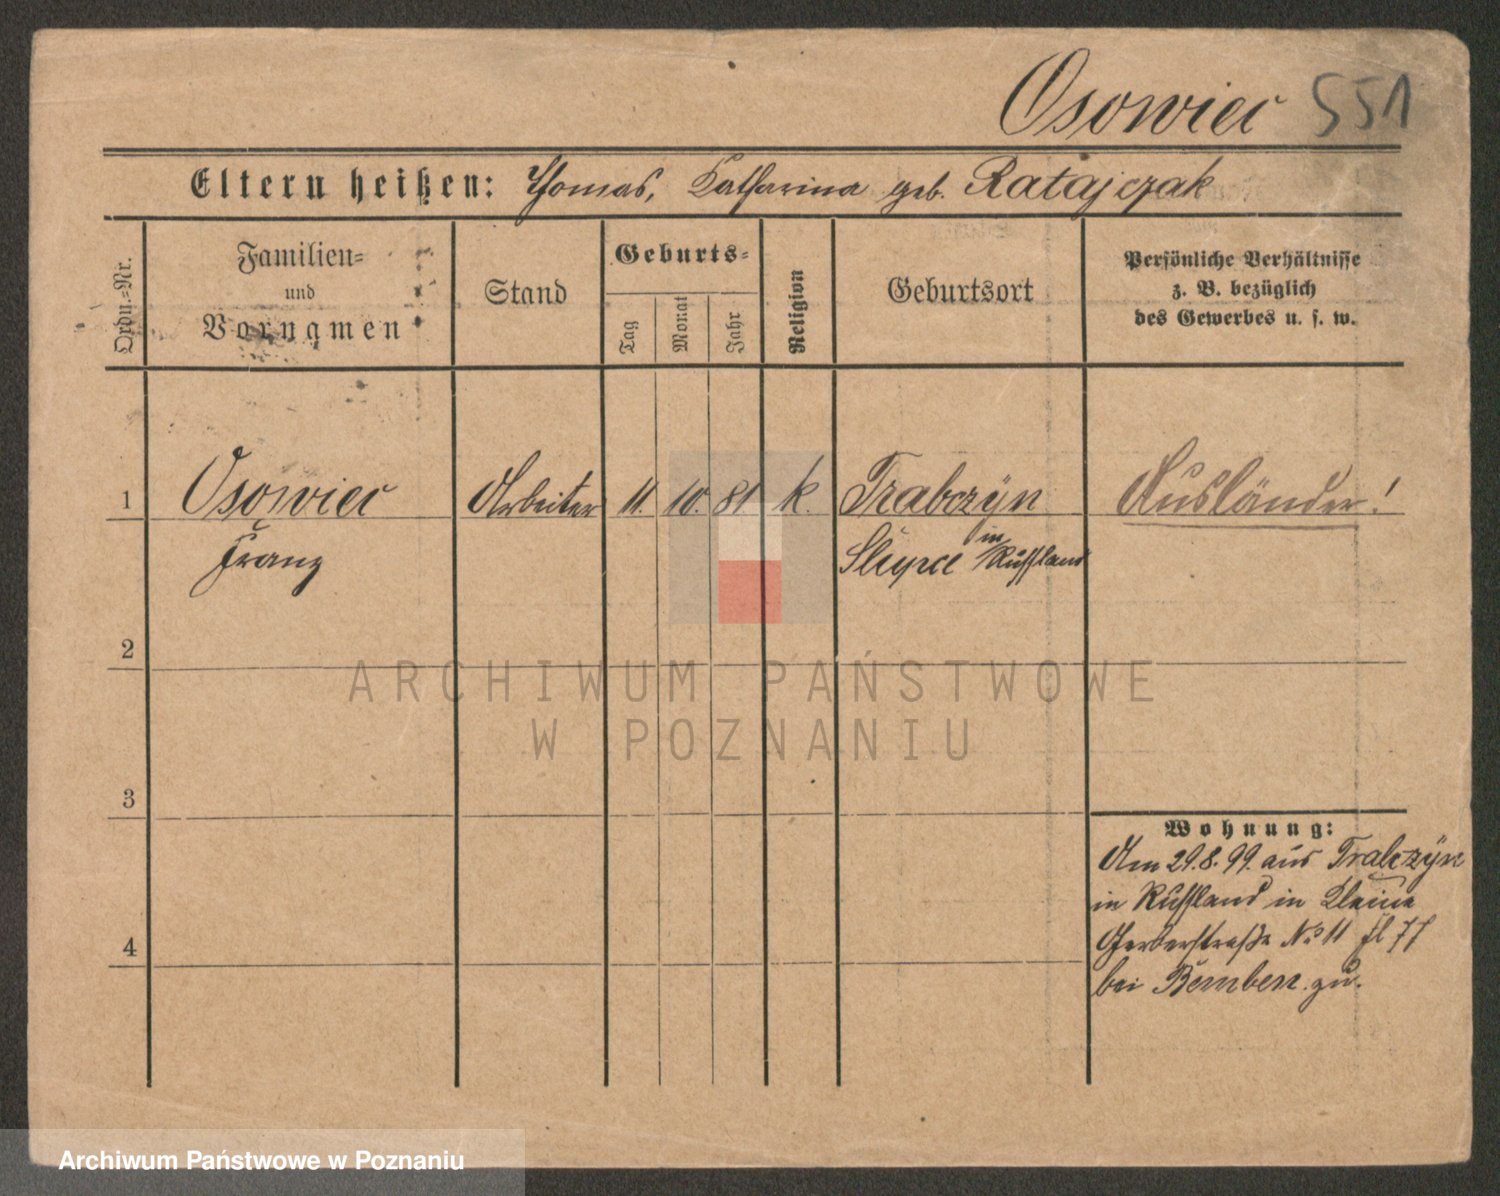 Osowiec 551
Eltern heißen: Thomas, Katharina geb. Ratajczak
Ordn.-Nr.
Familien-
und
Vornamen
Stand
Geburts-
Tag
Monat
Jahr
Religion
Geburtsort
Persönliche Verhältnisse
z. B. bezüglich
des Gewerbes u. s. w.
1 Osowiec Arbeiter 11. 10. 81 k. Trabczyn Ausländer!
Franz Slupce in Russland
2
3
4
Wohnung:
Am 29.8.99. aus Trabczyn
in Russland in Kleine
Gerberstraße No 11
bei Bemben zu.
ARCHIWUM PAŃSTWOWE
W POZNANIU
Archiwum Państwowe w Poznaniu